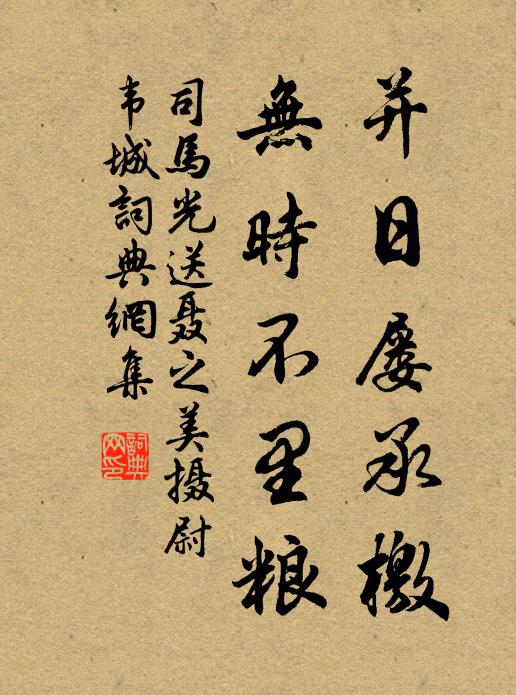 并日屡承檄
無時不里粮
司馬光送聂之美摄尉
韦城詞典網集
詞典网印